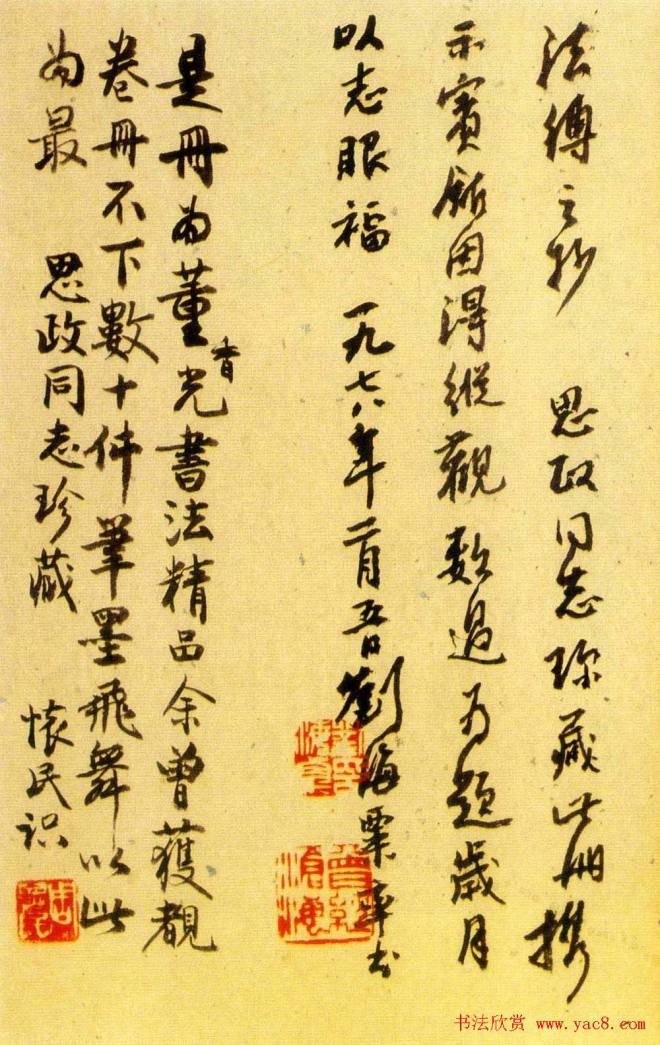 法之 思政同志珍藏此冊携
示賓館因得縱觀數過为題歲月
以志眼福 一九七八年二月五日劉海粟率書
是冊為董香光書法精品余曾獲覩
卷冊不下數十件筆墨飛舞以此
為最 思政同志珍藏 懷民識
曾經滄海
书法欣赏 www.yac8.com